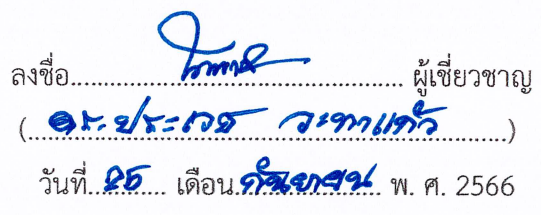 ลงชื่อ.................................................. ผู้เชี่ยวชาญ
(ดร.ประเวศ วะทาแก้ว)
วันที่ 25 เดือน กันยายน พ. ศ. 2566